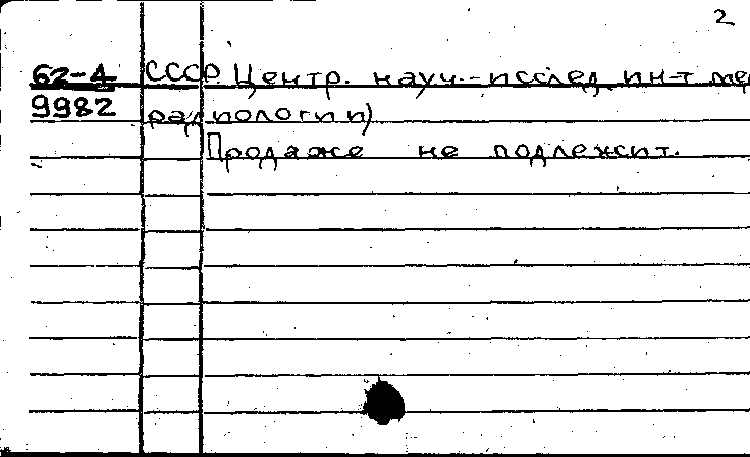 2
62-4 СССР. Центр. науч.-исслед. ин-т ме
9982 радиологии)
Продаже не подлежит.